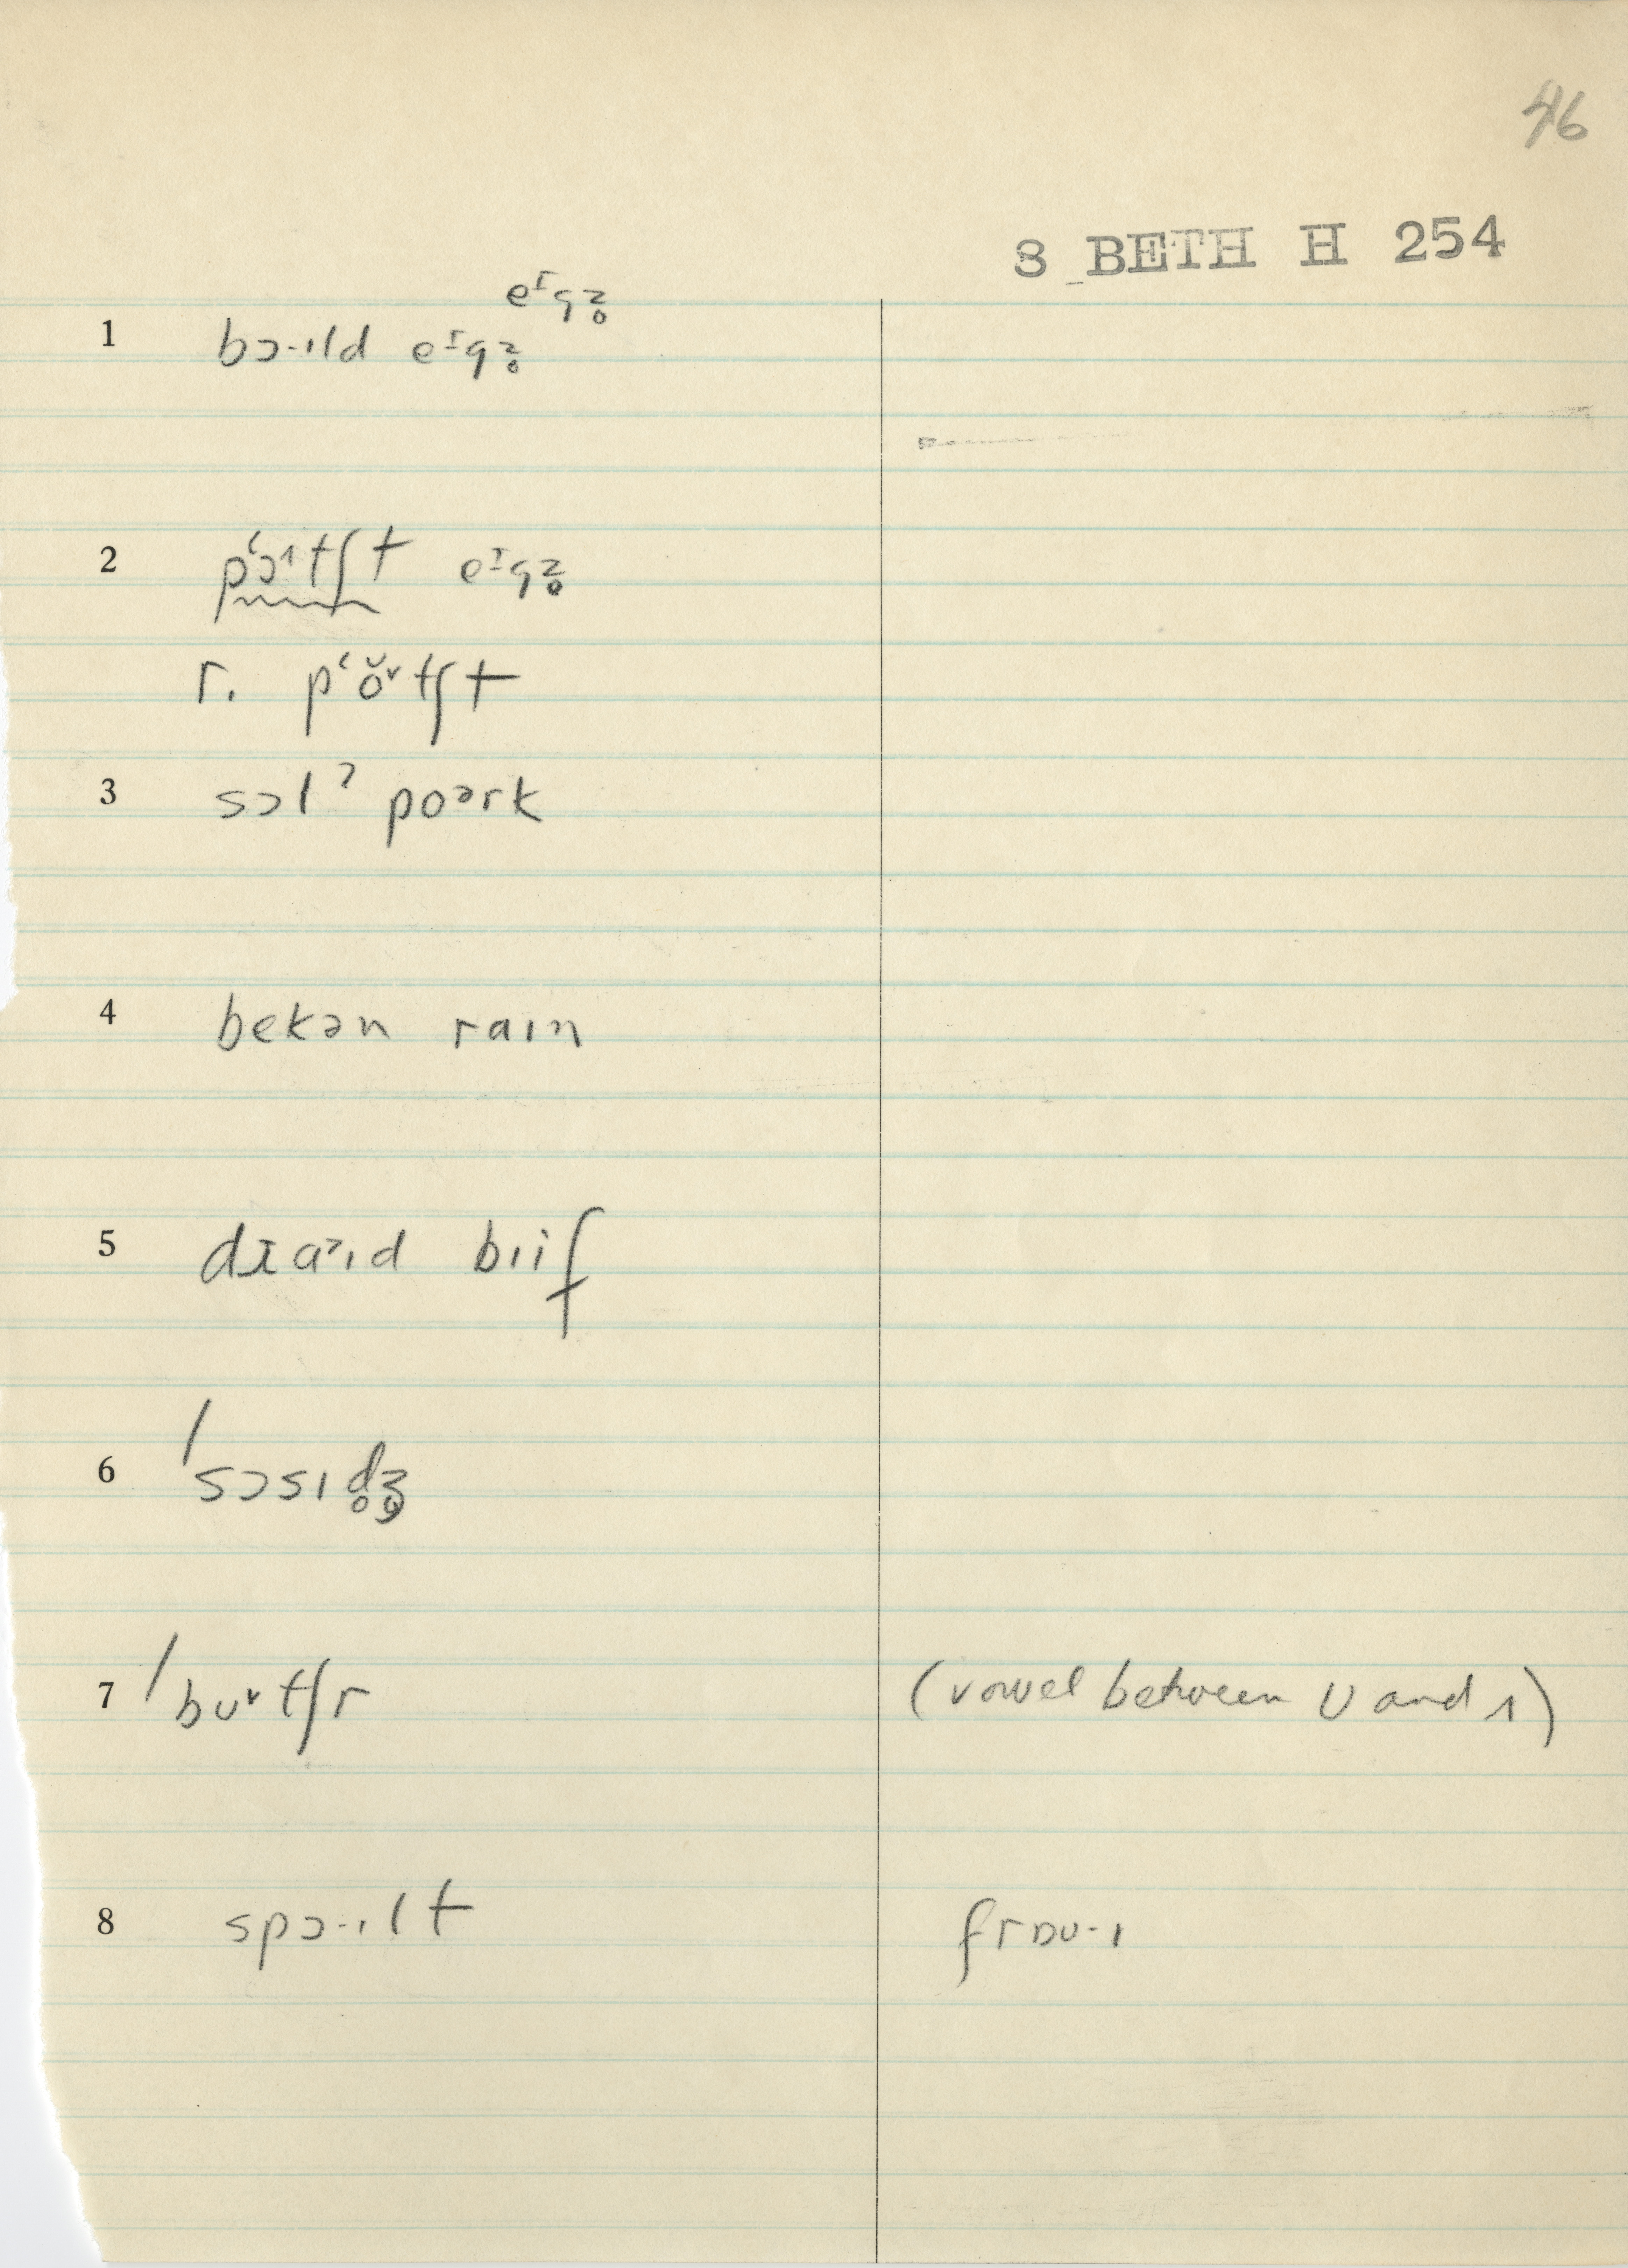 46
S BETH H 254
eᶦgz̥
1 bɔ·ɪld eᶦgz̥
2 pʻɔ¹tʃt eᶦgz̥
r. pʻŏᵛtʃt
3 sɔlˀ poᵊrk
4 bekən raɪn
5 dɪaᵊɪd bɪif
6 /sɔsɪd̥ʒ̥
7 /buᵛtʃr (vowel between U and ʌ)
8 spɔ·ɪlt frɒu·ɪ